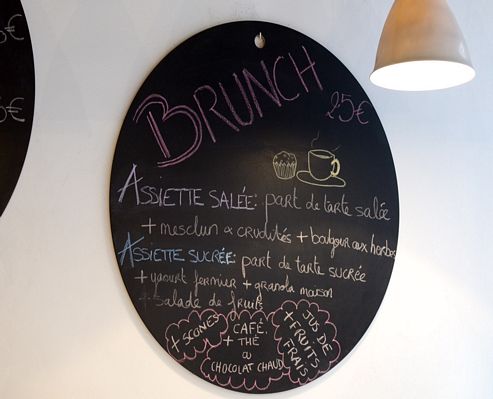 5€
5€
BRUNCH
25€
ASSIETTE SALÉE: part de tarte salée
+ mesclun & crudités + boulgour aux herbes
ASSIETTE SUCRÉE: part de tarte sucrée
+ yaourt fermier + granola maison
+ salade de fruits
+ SCONES
CAFÉ
+ THÉ
OU
CHOCOLAT CHAUD
JUS DE
+ FRUITS
FRAIS